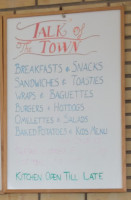 TALK of
The TOWN
BREAKFASTS & SNACKS
SANDWICHES & TOASTIES
WRAPS & BAGUETTES
BURGERS & HOTDOGS
OMELETTES & SALADS
BAKED POTATOES & KIDS MENU
KITCHEN OPEN TILL LATE